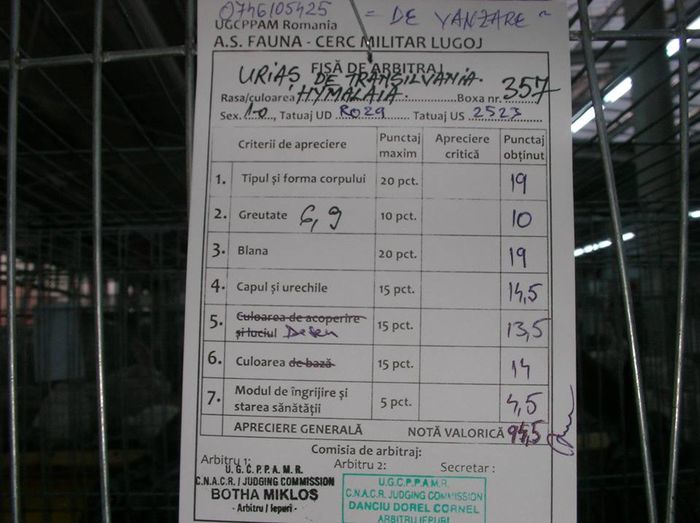 0746105425 = DE VANZARE ~
UGCPPAM Romania
A.S. FAUNA - CERC MILITAR LUGOJ
FIȘĂ DE ARBITRAJ
URIAȘ DE TRANSILVANIA.
Rasa/culoarea HYMALAIA Boxa nr. 357
Sex. 1-0, Tatuaj UD RO29 Tatuaj US 2523
Criterii de apreciere Punctaj maxim Apreciere critică Punctaj obținut
1. Tipul și forma corpului 20 pct. 19
2. Greutate 6,9 10 pct. 10
3. Blana 20 pct. 19
4. Capul și urechile 15 pct. 14,5
5. Culoarea de acoperire și luciul Desen 15 pct. 13,5
6. Culoarea de bază 15 pct. 14
7. Modul de îngrijire și starea sănătății 5 pct. 4,5
APRECIERE GENERALĂ NOTĂ VALORICĂ 94,5
Comisia de arbitraj:
Arbitru 1: Arbitru 2: Secretar :
U.G.C.P.P.A.M.R.
C.N.A.C.R. / JUDGING COMMISSION
BOTHA MIKLOȘ
- Arbitru / Iepuri -
U.G.C.P.P.A.M.R.
C.N.A.C.R. JUDGING COMMISSION
DANCIU DOREL CORNEL
ARBITRU IEPURI